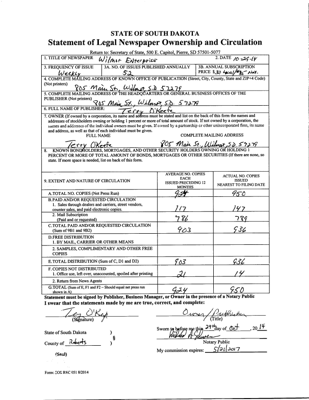 STATE OF SOUTH DAKOTA
Statement of Legal Newspaper Ownership and Circulation
Return to: Secretary of State, 500 E. Capitol, Pierre, SD 57501-5077
1. TITLE OF NEWSPAPER Wilmot Enterprise 2. DATE
3. FREQUENCY OF ISSUE Weekly 3A. NO. OF ISSUES PUBLISHED ANNUALLY 52 3B. ANNUAL SUBSCRIPTION PRICE
4. COMPLETE MAILING ADDRESS OF KNOWN OFFICE OF PUBLICATION (Street, City, County, State and ZIP+4 Code)
(Not printers) 805 Main St, Wilmot, SD 57279
5. COMPLETE MAILING ADDRESS OF THE HEADQUARTERS OR GENERAL BUSINESS OFFICES OF THE
PUBLISHER (Not printer) 805 Main St, Wilmot, SD 57279
6. FULL NAME OF PUBLISHER: Terry O'Keefe
7. OWNER (If owned by a corporation, its name and address must be stated and list on the back of this form the names and
addresses of stockholders owning or holding 1 percent or more of total amount of stock. If not owned by a corporation, the
names and addresses of the individual owners must be given. If owned by a partnership or other unincorporated firm, its name
and address, as well as that of each individual must be given.
FULL NAME COMPLETE MAILING ADDRESS
Terry O'Keefe 805 Main St, Wilmot, SD 57279
8. KNOWN BONDHOLDERS, MORTGAGES, AND OTHER SECURITY HOLDERS OWNING OR HOLDING 1
PERCENT OR MORE OF TOTAL AMOUNT OF BONDS, MORTGAGES OR OTHER SECURITIES (If there are none, so
state. If more space is needed, list on back of this form.
9. EXTENT AND NATURE OF CIRCULATION
AVERAGE NO. COPIES EACH ISSUED PRECEDING 12 MONTHS
ACTUAL NO. COPIES ISSUED NEAREST TO FILING DATE
A. TOTAL NO. COPIES (Net Press Run) 924 950
B. PAID AND/OR REQUESTED CIRCULATION
1. Sales through dealers and carriers, street vendors,
counter sales, and paid electronic copies. 117 147
2. Mail Subscription
(Paid and or requested) 786 789
C. TOTAL PAID AND/OR REQUESTED CIRCULATION
(Sum of 9B1 and 9B2) 903 936
D. FREE DISTRIBUTION
1. BY MAIL, CARRIER OR OTHER MEANS
2. SAMPLES, COMPLIMENTARY AND OTHER FREE
COPIES
E. TOTAL DISTRIBUTION (Sum of C, D1 and D2) 903 936
F. COPIES NOT DISTRIBUTED
1. Office use, left over, unaccounted, spoiled after printing 21 14
2. Return from News Agents
G. TOTAL (Sum of E, F1 and F2 - Should equal net press run
shown in A) 924 950
Statement must be signed by Publisher, Business Manager, or Owner in the presence of a Notary Public
I swear that the statements made by me are true, correct, and complete:
(Signature) Owner/Publisher (Title)
State of South Dakota )
Sworn to before me this 29th day of Oct, 2014
§
County of Roberts )
Notary Public
(Seal) My commission expires: 5/21/2017